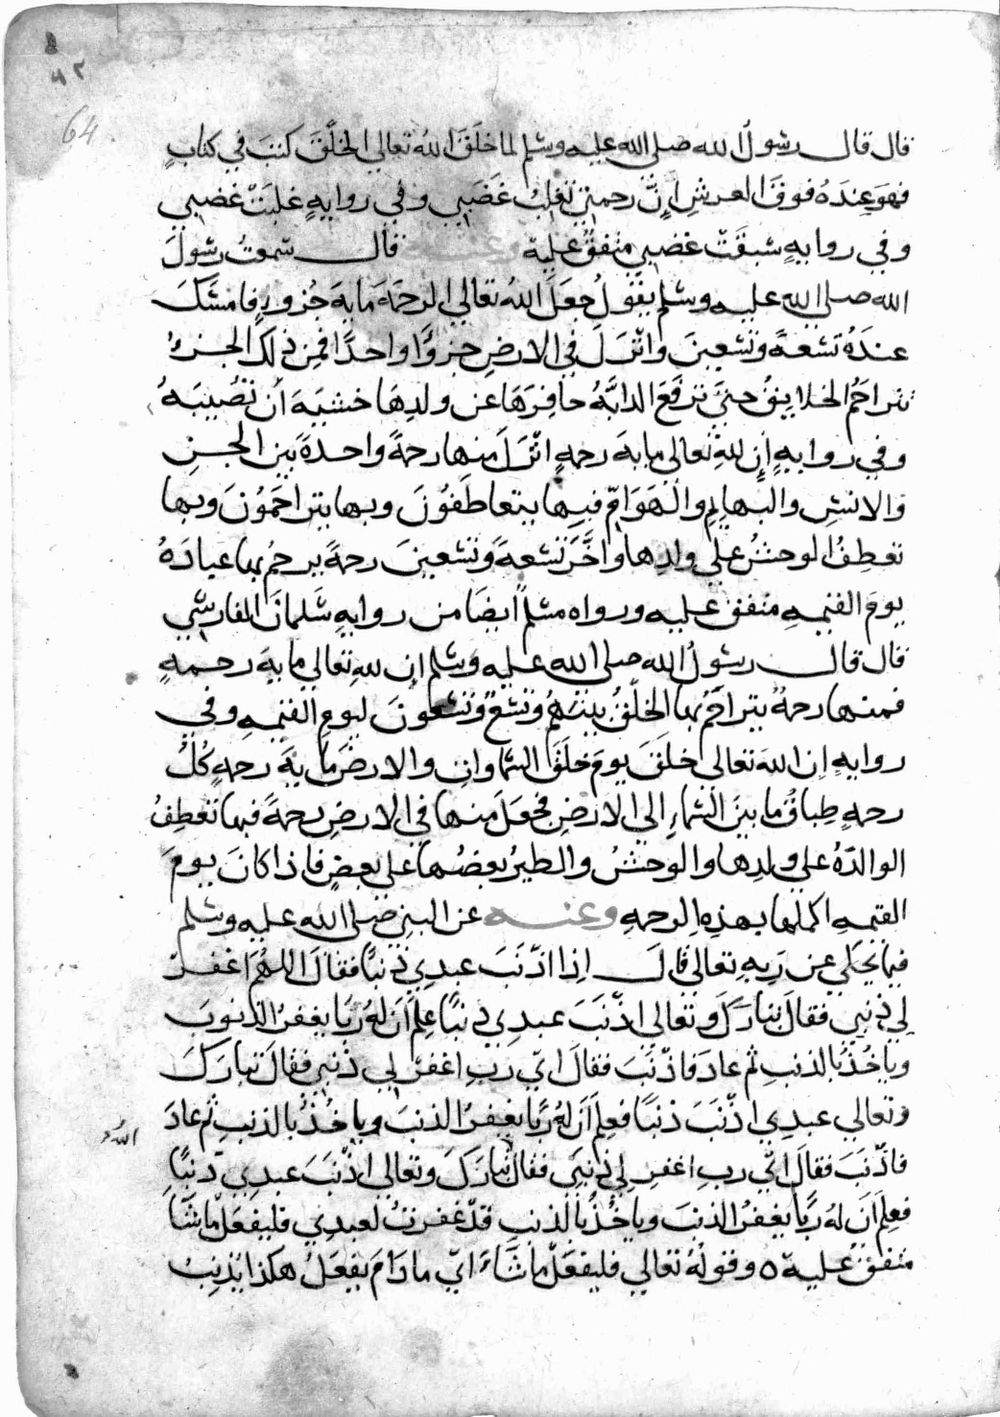 ٦٢
64
قال قال رسولُ الله صلى الله عليه وسلم لما خلَقَ اللهُ تعالى الخلْقَ كتبَ في كتابٍ
فهوَ عندَهُ فوقَ العرشِ إنَّ رحمتي تغلبُ غضَبي وفي روايهٍ غلبَتْ غضبي
وفي روايهٍ سبقَتْ غضبي متفقٌ عليه وعنــه قال سمعتُ رسولَ
الله صلى الله عليه وسلم يقولُ جعَلَ اللهُ تعالى الرحمَةَ مايةَ جُزوٍ فامسَكَ
عندَهُ تسعةً وتسعينَ وانْزلَ في الارضِ جزوًا واحدًا فمِن ذلكَ الجزءِ
تتراحَمُ الخلايقُ حتى ترفَعَ الدابَّهُ حافِرَها عن ولدِها خشيَةَ ان تُصيبَهُ
وفي روايهٍ إن للهِ تعالى مايةَ رحمهٍ انْزلَ منها رحمةً واحدةً بين الجنِ
والانسِ والبهايمِ والهَوَامِّ فبِها يتعاطَفُونَ وبها يتراحَمُونَ وبها
تعطِفُ الوحشُ على ولدِها وأخَّرَ تسعةً وتسعينَ رحمةً يرحمُ بها عبادَهُ
يومَ القيمهِ متفق عليه ورواه مسلمٌ ايضًا من روايهِ سَلمانَ الفارسي
قال قال رسولُ الله صلى الله عليه وسلم ان للهِ تعالى مايةَ رحمهٍ
فمنها رحمةٌ يتراحَمُ بها الخلْقُ بينَهُمْ وتسعٌ وتسعونَ ليومِ القيمهِ وفي
روايهٍ ان اللهَ تعالى خلقَ يومَ خلَقَ السماواتِ والارضَ مايةَ رحمهٍ كلُّ
رحمهٍ طِباقُ ما بينَ السماءِ الى الارضِ فجعَلَ منها في الارضِ رحمةً فبها تعطِفُ
الوالدَهُ على ولدِها والوحشُ والطيرُ بعضُها على بعضٍ فاذا كانَ يومَ
القيمهِ اكملَها بهذهِ الرحمهِ وعنــه عن النبي صلى الله عليه وسلم
فيما يحكي عن رَبِهِ تعالى قالَ اذا اذْنَبَ عبدي ذنبًا فقالَ اللهُمَّ اغفرْ
لي ذنبي فقالَ تباركَ وتعالى اذْنَبَ عبدي ذنبًا علِمَ أنَ لهُ رَبًا يغفرُ الذنوبَ
وياخُذُ بالذنبِ ثم عادَ فاذْنَبَ فقالَ اي ربِ اغفرْ لي ذنبي فقالَ تباركَ
وتعالى عبدي اذْنَبَ ذنبًا فعلِمَ أنَ لهُ ربًا يغفرُ الذنبَ وياخُذُ بالذنبِ ثم عادَ
فاذْنَبَ فقالَ اي ربِ اغفرِ لي ذنبي فقالَ تباركَ وتعالى اذْنَبَ عبدي ذنبًا
اللهُ
فعلِمَ أنَ لهُ ربًا يغفرُ الذنبَ وياخُذُ بالذنبِ قدْ غفرتُ لعبدي فليفعَلْ ما شَآ
متفقٌ عليه ه وقولُهُ تعالى فليفعَلْ ما شَاءَ اي ما دَامَ يفعَلُ هكذا يُذنِبُ